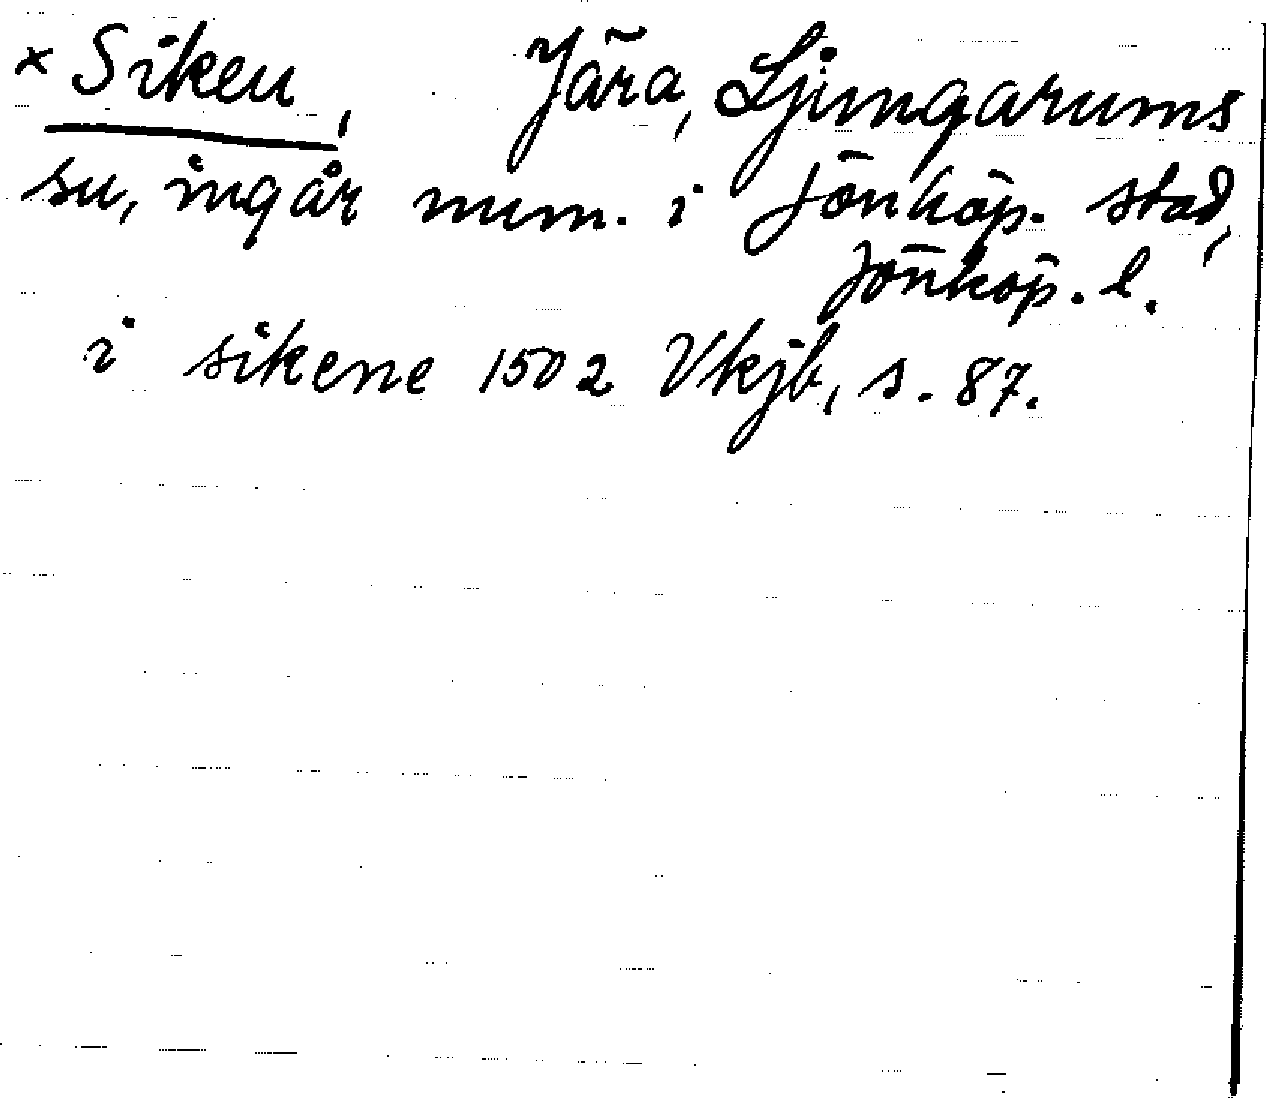 × Siken, Jära, Ljungarums
sn, ingår num. i Jönköp. stad,
Jönköp. l.
i sikene 1502 Vkjb, s. 87.